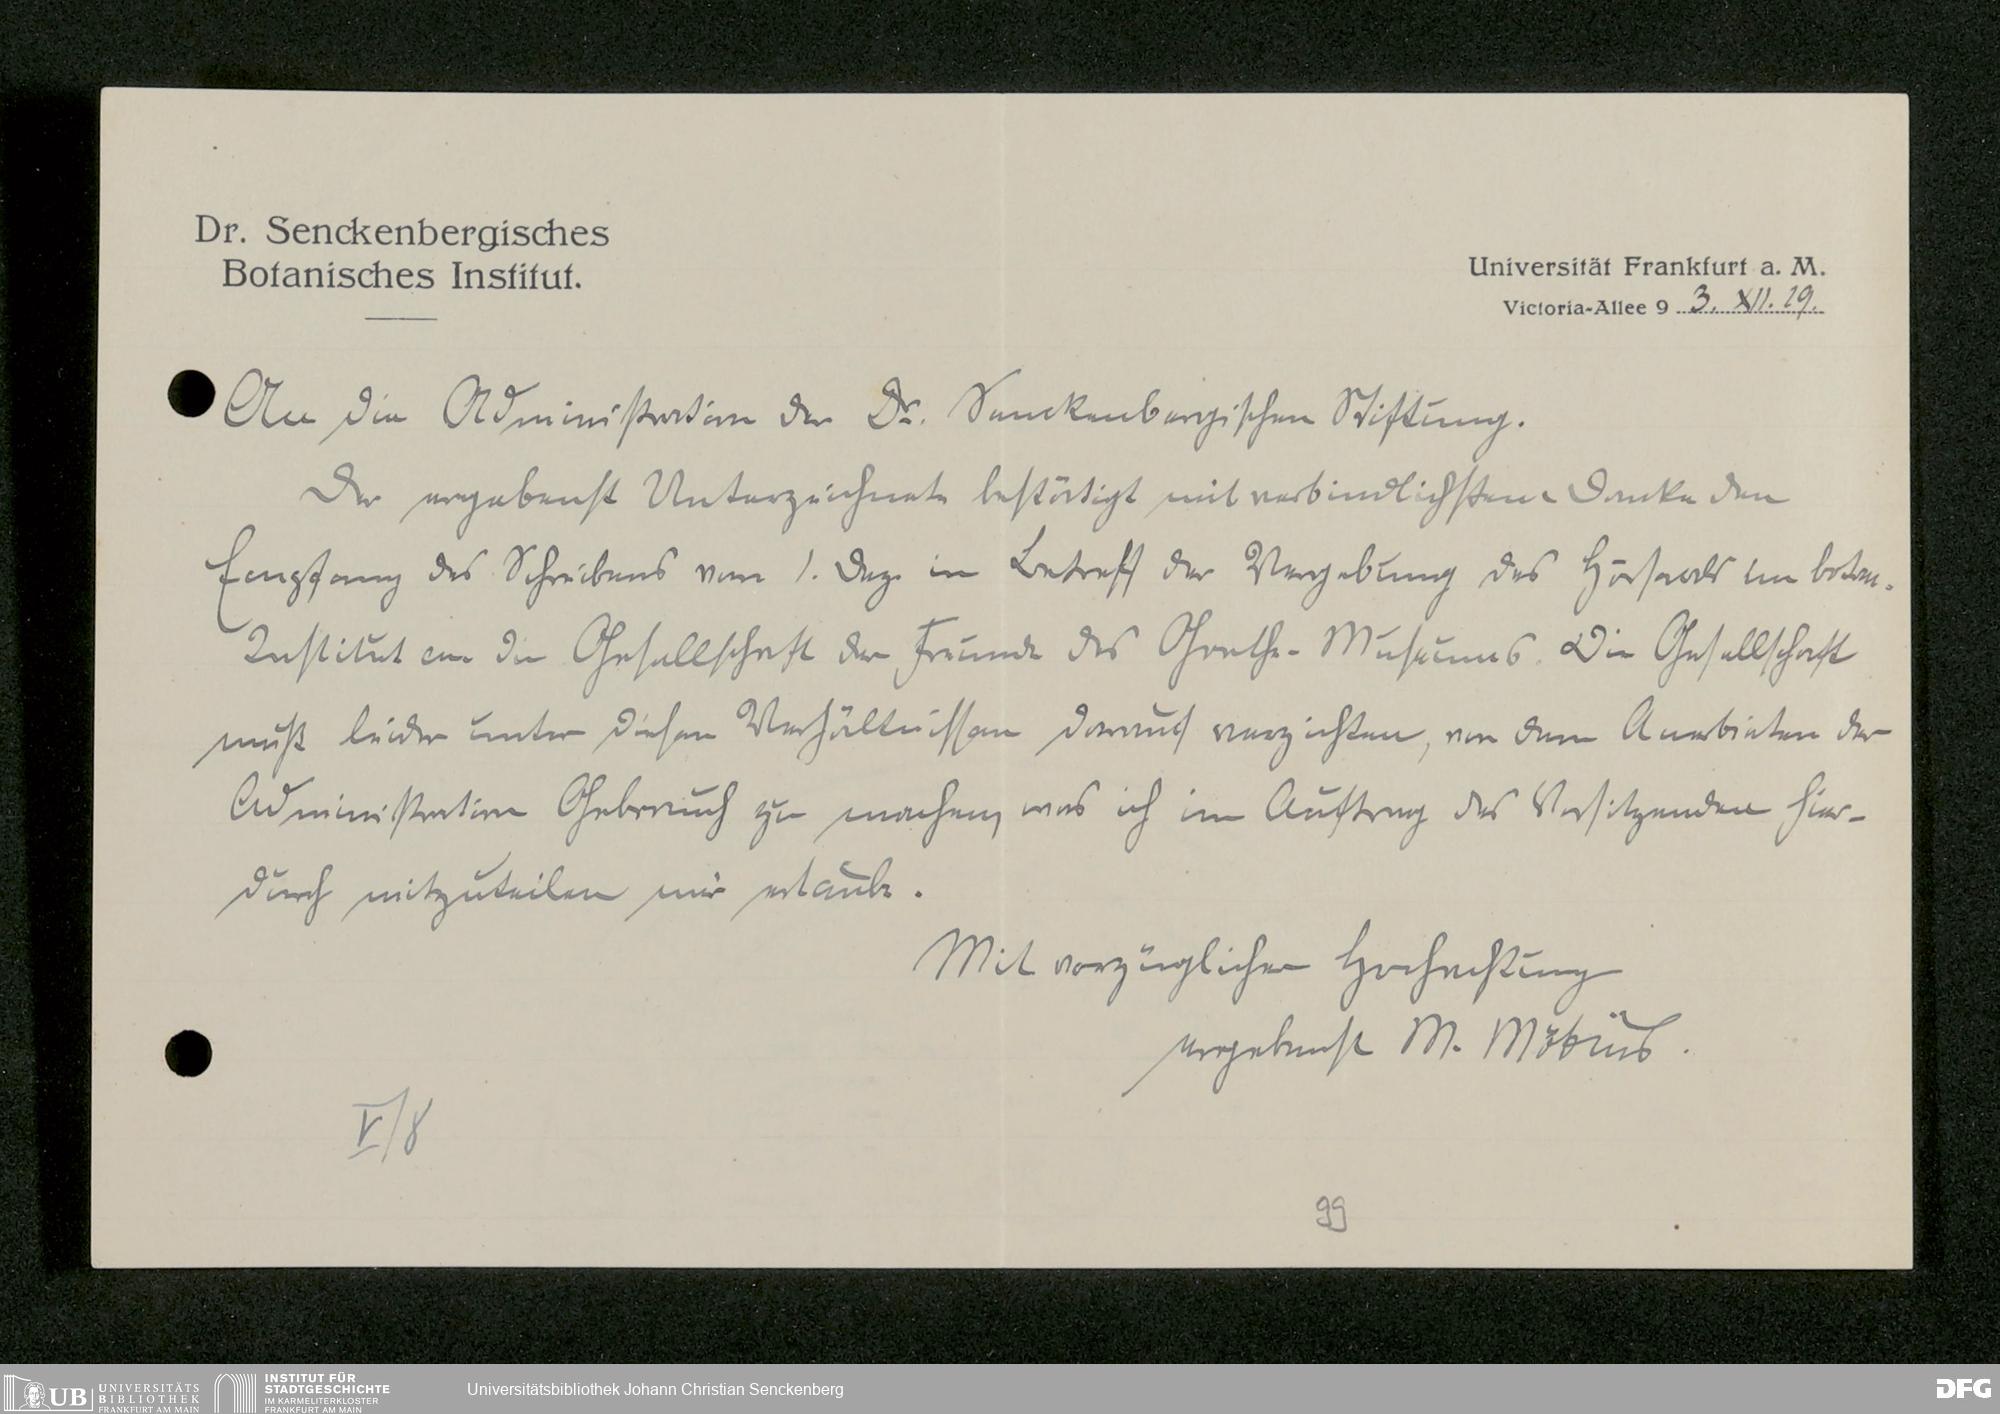 Dr. Senckenbergisches
Botanisches Institut.
Universität Frankfurt a. M.
Victoria-Allee 9 3. XII. 19.
An die Administration der Dr. Senckenbergischen Stiftung.
Der ergebenst Unterzeichnete bestätigt mit verbindlichstem Danke den
Empfang des Schreibens vom 1. Dez. in Betreff der Vergebung des Hörsaals im botan.
Institut an die Gesellschaft der Freunde des Goethe-Museums. Die Gesellschaft
muß leider unter diesen Verhältnissen darauf verzichten, von dem Anerbieten der
Administration Gebrauch zu machen, was ich im Auftrag des Vorsitzenden hier-
durch mitzuteilen mir erlaube.
Mit vorzüglicher Hochachtung
ergebenst M. Möbius.
V/8
99
UB UNIVERSITÄTS
BIBLIOTHEK
FRANKFURT AM MAIN
INSTITUT FÜR
STADTGESCHICHTE
IM KARMELITERKLOSTER
FRANKFURT AM MAIN
Universitätsbibliothek Johann Christian Senckenberg
DFG